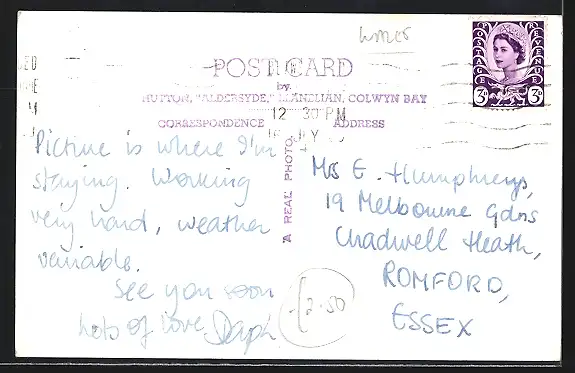 POST CARD
by
HUTTON, "ALDERSYDE," LLANDLIAN, COLWYN BAY
12 30 PM
CORRESPONDENCE
ADDRESS
JLY
A REAL PHOTO.
Picture is where I'm
staying. Working
very hard, weather
variable.
See you soon
Lots of love.
Mrs E. Humphreys,
19 Melbourne Gdns
Chadwell Heath,
ROMFORD,
ESSEX
2.50
POSTAGE
REVENUE
3D 3D